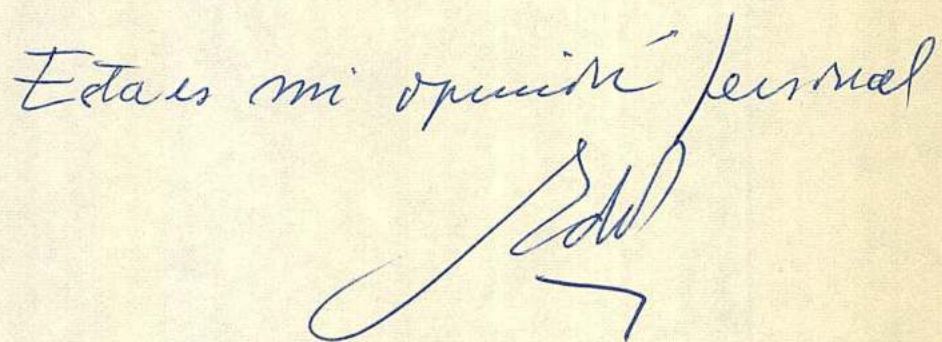 Esta es mi opinión personal